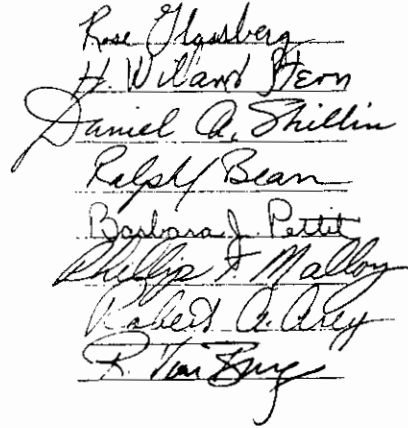 Rose Glassberg
H. Wiland Stern
Daniel A. Shillin
Ralph Bean
Barbara J. Pettit
Phillip F Malloy
Robert A. Arey
R.